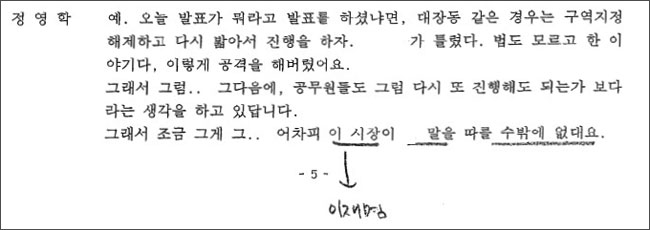 정 영 학 예. 오늘 발표가 뭐라고 발표를 하셨냐면, 대장동 같은 경우는 구역지정
해제하고 다시 밟아서 진행을 하자. 가 틀렸다. 법도 모르고 한 이
야기다, 이렇게 공격을 해버렸어요.
그래서 그럼.. 그다음에, 공무원들도 그럼 다시 또 진행해도 되는가 보다
라는 생각을 하고 있답니다.
그래서 조금 그게 그.. 어차피 이 시장이 말을 따를 수밖에 없대요.
- 5 -
이재명